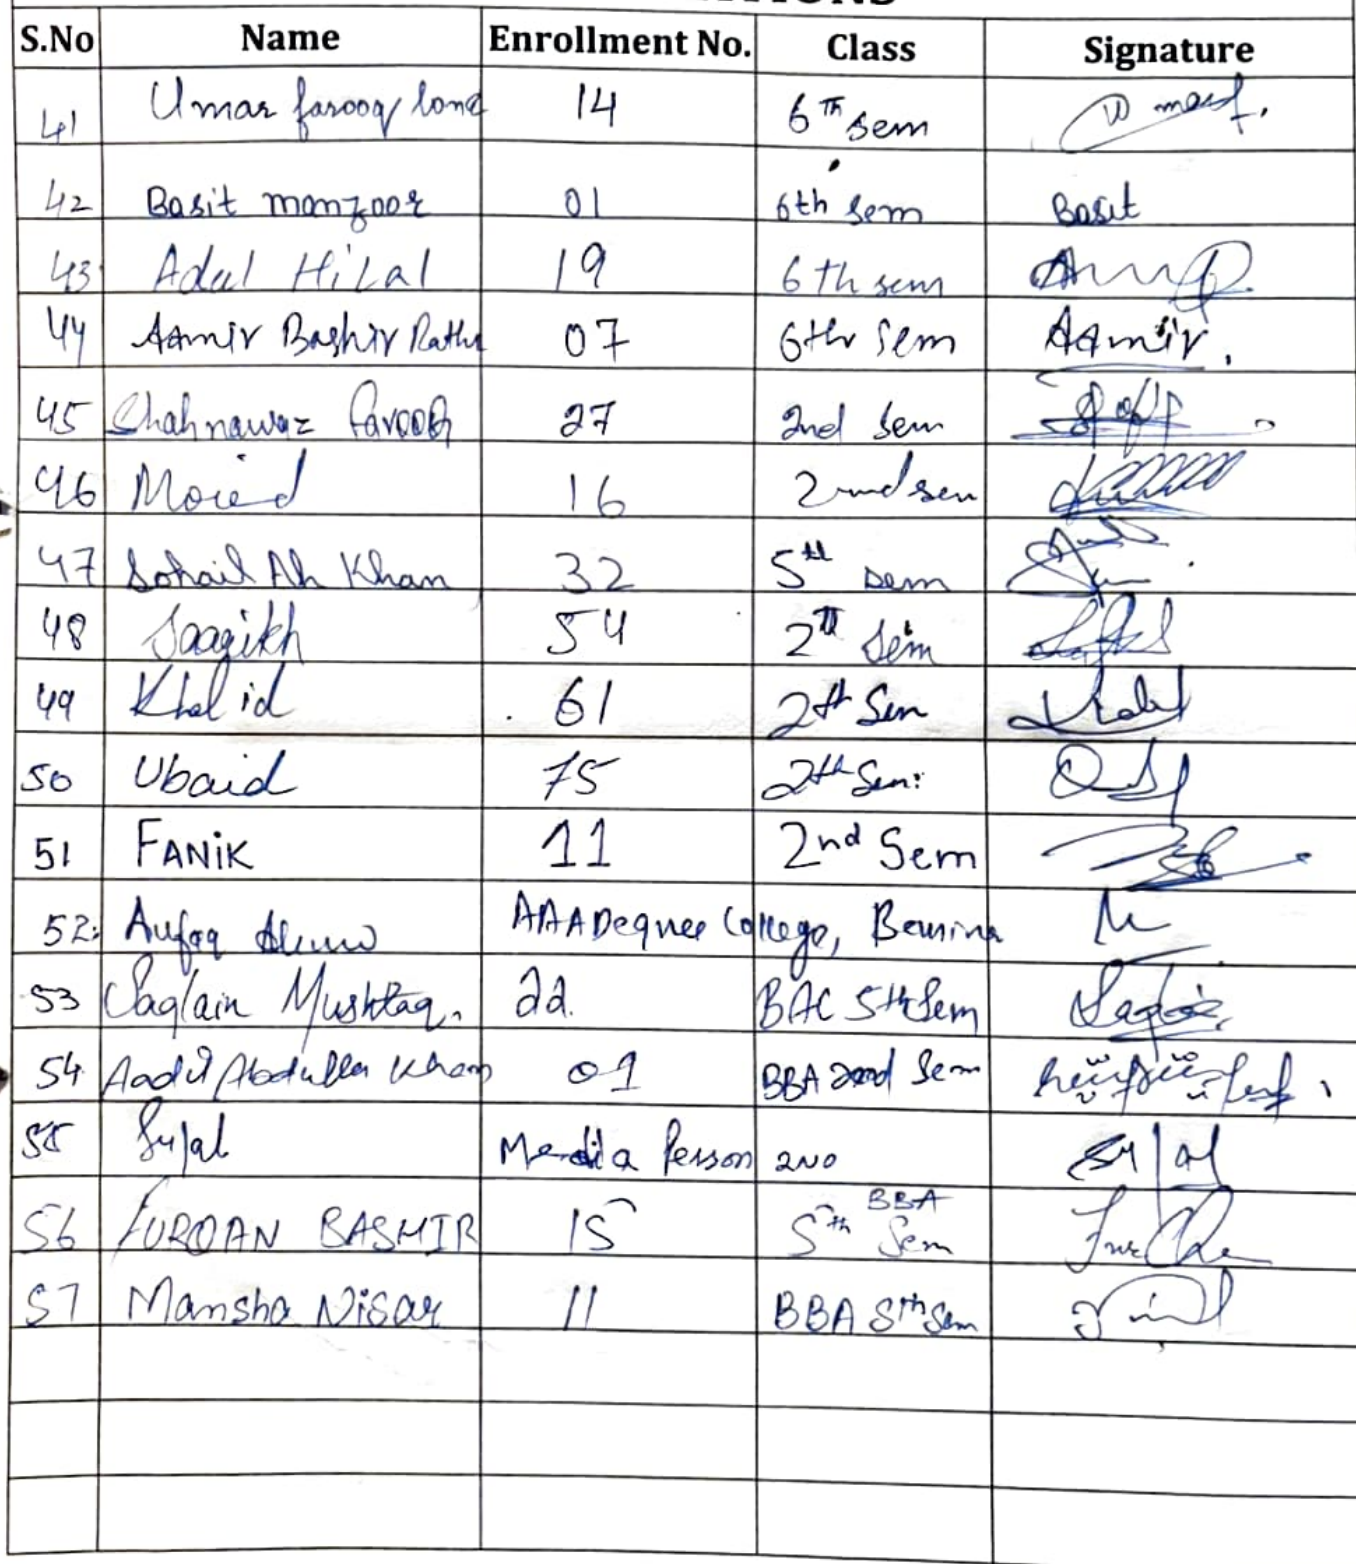 S.No Name Enrollment No. Class Signature
41 Umar farooq lone 14 6th sem
42 Basit manzoor 01 6th sem Basit
43 Adul HiLal 19 6th sem
44 Aamir Bashir Rathe 07 6th Sem Aamir.
45 Shahnawaz Farooq 27 2nd Sem
46 Moied 16 2nd sem
47 Sohail Ah Khan 32 5th sem
48 54 2th Sem
49 Khalid 61 2th Sem Khalid
50 Ubaid 75 2th Sem:
51 FANiK 11 2nd Sem
52: Aufaq AAA Degree College, Bemina
53 Saqlain Mushtaq. 22. 5th Sem
54 Aadil Abdulla Khan 01 BBA 2nd Sem
55 Sujal Media Person 2ND Sujal
56 FURQAN BASHIR 15 5th BBA Sem
57 Mansha Nisar 11 BBA 5th Sem